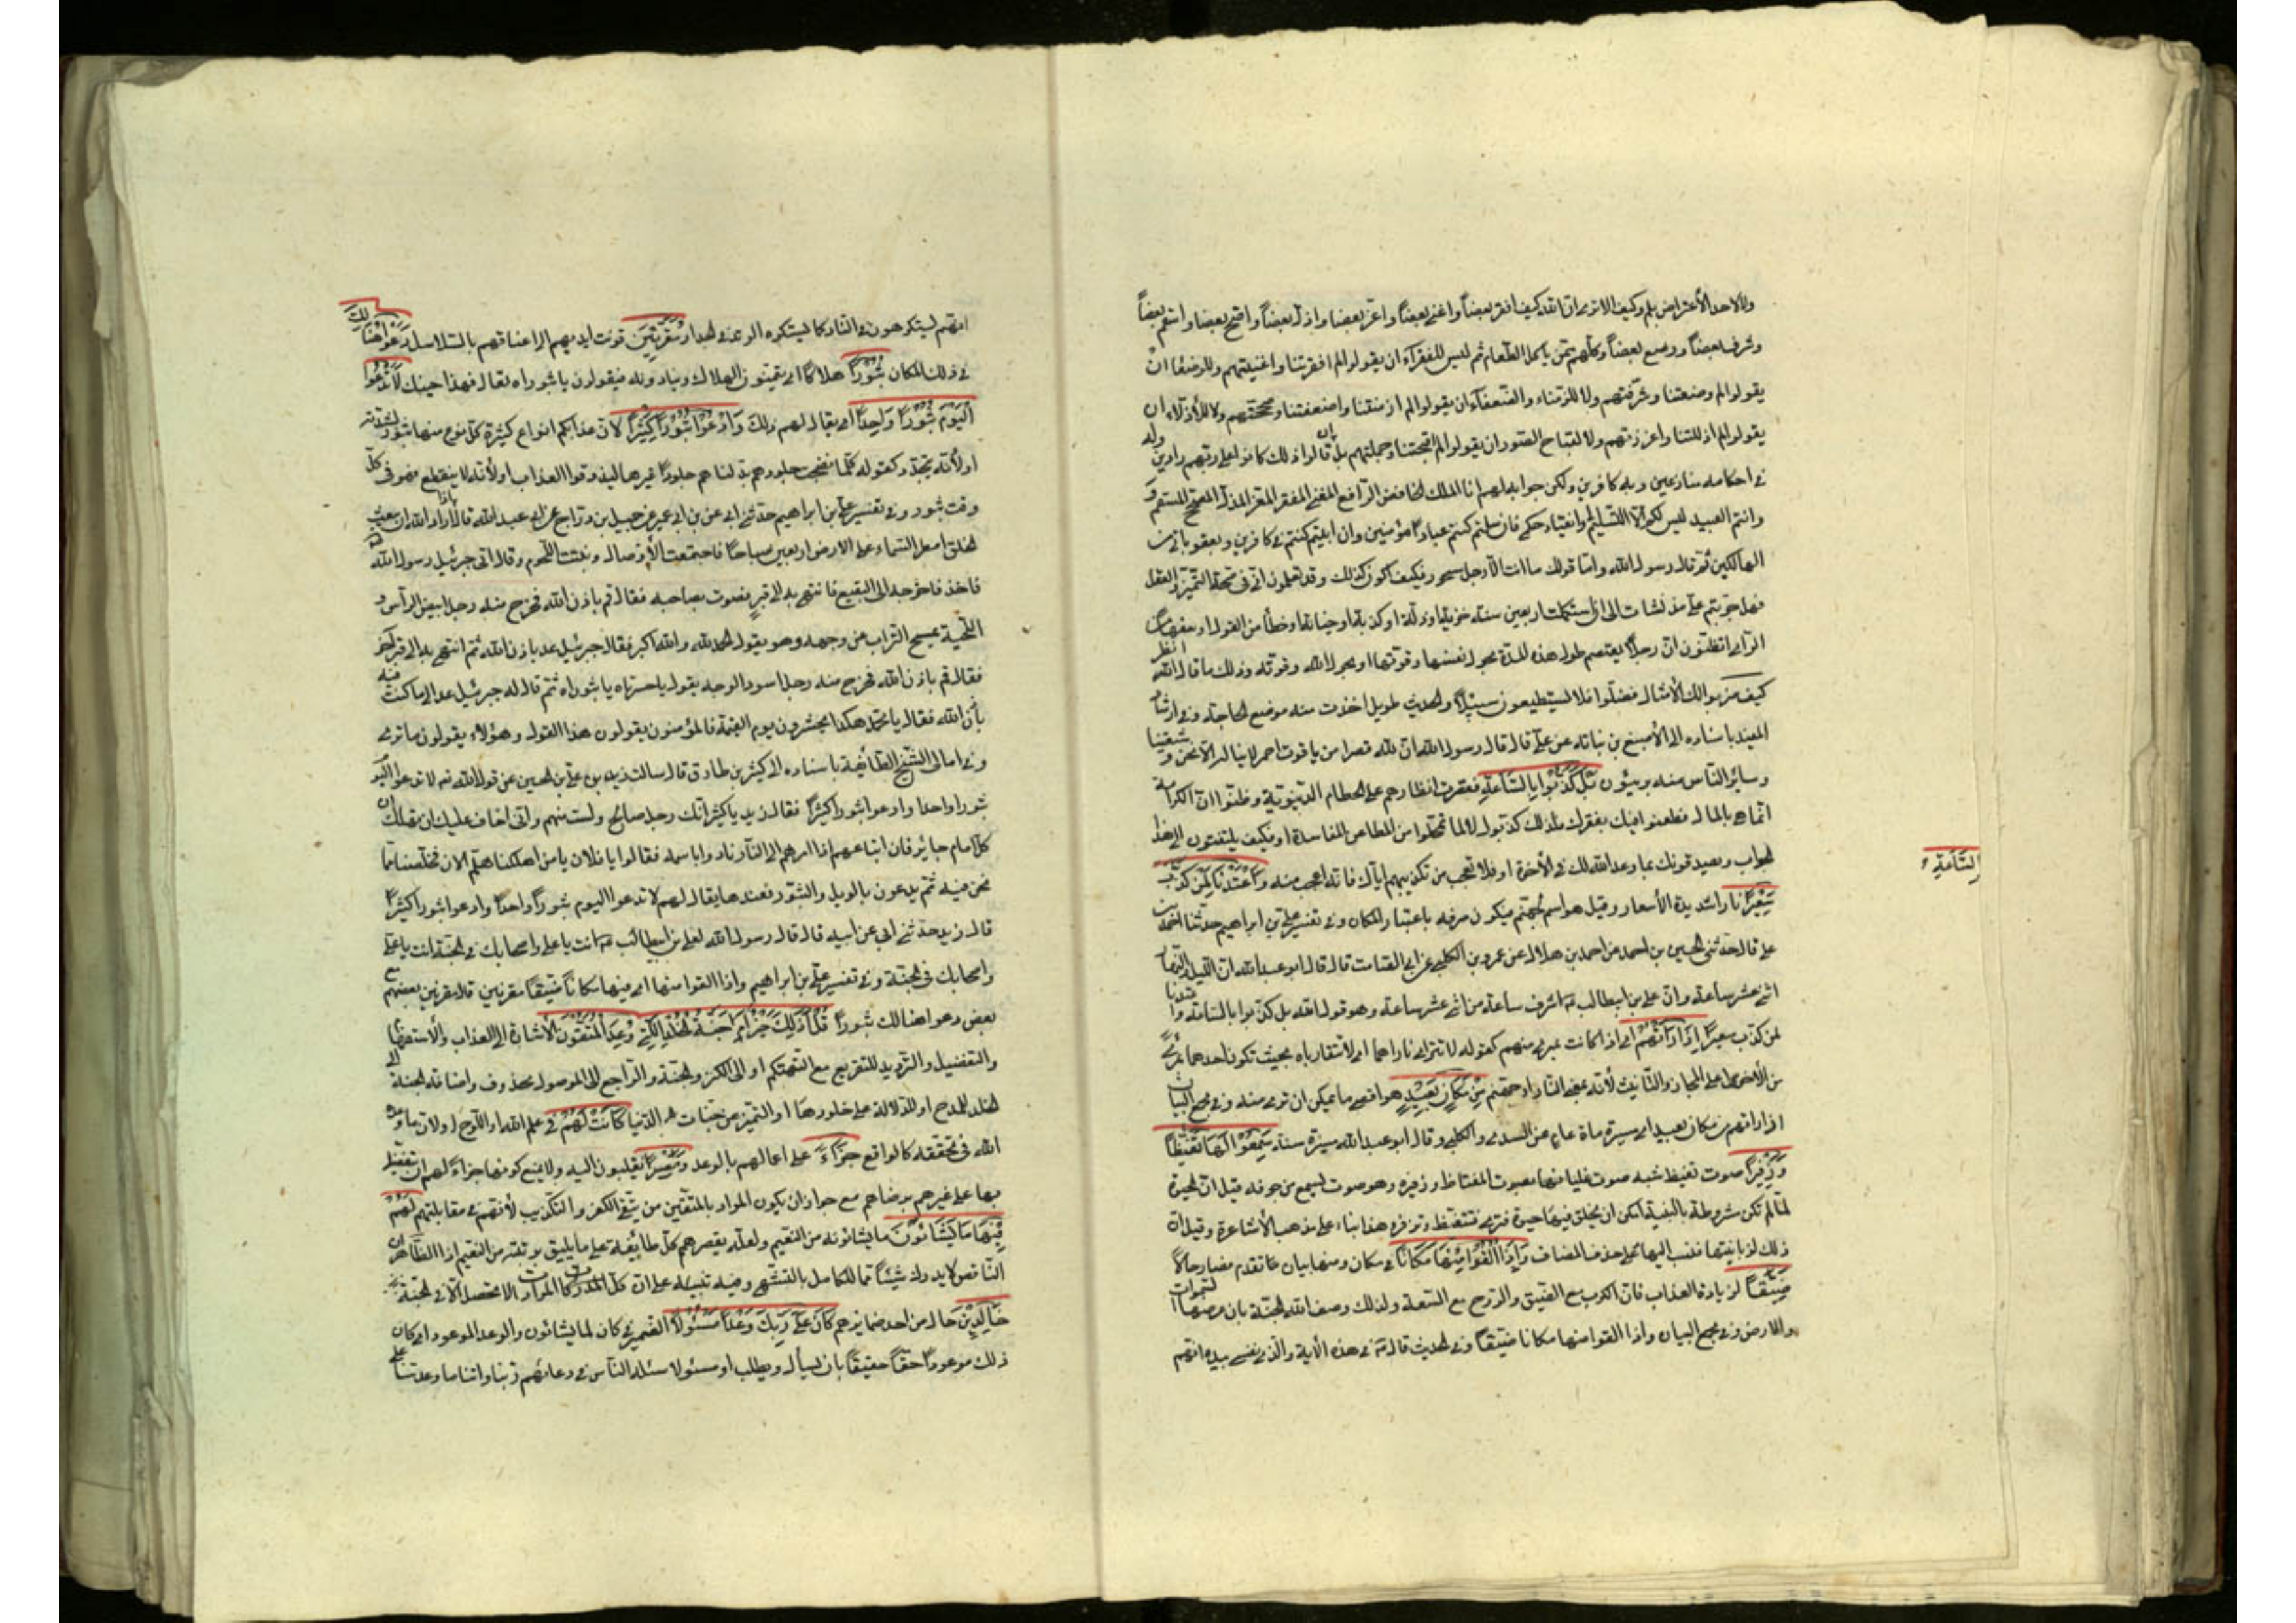 ولا لاحد الاعتراض بلم وكيف الا ترى ان الله كيف افقر بعضاً واغنى بعضاً واعز بعضا واذل بعضاً واصح بعضا واسقم بعضاً
وشرف بعضاً ووضع بعضاً وكلهم ممن ياكل الطعام ثم ليس للفقرآء ان يقولوا لم افقرتنا واغنيتهم ولا للوضعاء ان
يقولوا لم وضعتنا وشرفتهم ولا للزمناء والضعفآء ان يقولوا لم ازمنتنا واضعفتنا وصححتهم ولا للاذلاء ان
يقولوا لم اذللتنا واعززتهم ولا لقباح الصور ان يقولوا لم قبحتنا وجملتهم بل ان قالوا ذلك كانوا على ربهم رادين وله
في احكامه منازعين وبه كافرين ولكن جوابه لهم انا الملك الخافض الرافع المغنى المفقر المعز المذل المصحح المسقم و
وانتم العبيد ليس لكم الا التسليم لى والانقياد لحكمى فان سلمتم كنتم عبادا مؤمنين وان ابيتم كنتم بى كافرين وبعقوباتى من
الهالكين ثم قال رسول الله واما قولك ما انت الا رجل مسحور فكيف اكون كذلك وقد تعلمون انى فى صحة التميز والعقل
فهل جربتم على منذ نشات الى ان استكملت اربعين سنة خزية او زلة او كذبة او جناية او خطأ من القول او سفها من
الراى اتظنون ان رجلاً يعتصم طول هذه المدة بحول نفسها وقوتها او بحول الله وقوته وذلك ما قال الله انظر
كيف ضربوا لك الأمثال فضلوا فلا يستطيعون سبيلاً والحديث طويل اخذت منه موضع الحاجة وفى ارشاد
المفيد باسناده الى الأصبغ بن نباتة عن على قال قال رسول الله ان لله قصرا من ياقوت احمر لا يناله الا نحن وشيعتنا
وساير الناس منه بريئون بَلْ كَذَّبُوا بِالسَّاعَةِ فقصرت انظارهم على الحطام الدنيوية وظنوا ان الكرامة
انما هى بالمال فطعنوا فيك بفقرك فلذلك كذبوك لا لما تمحلوا من المطاعن الفاسدة او فكيف يلتفتون الى هذا
الجواب ويصدقونك بما وعد الله لك فى الأخرة او فلا تعجب من تكذيبهم اياك فانه اعجب منه وَاَعْتَدْنَا لِمَنْ كَذَّبَ
السَّاعَةِ
سَعِيْراً نارا شديدة الأسعار وقيل هو اسم لجهنم فيكون صرفه باعتبار المكان وفى تفسير على بن ابراهيم حدثنا احمد بن
على قال حدثنى الحسين بن احمد عن احمد بن هلال عن عمرو بن الكلبى عن ابى الصامت قال قال ابو عبد الله ان الليل والنهار
اثنى عشر ساعة وان على بن ابيطالب اشرف ساعة من اثنى عشر ساعة وهو قول الله بل كذبوا بالساعة واعتدنا
لمن كذب سعيراً اِذَا رَاَتْهُمْ اى اذا كانت بمرئ منهم كقوله لا تترائى نارهما اى لا تتقاربا بحيث تكون احدهما بمرئ
من الأخرى على المجاز والتانيث لأنه بمعنى النار او جهنم مِنْ مَكَانٍ بَعِيْدٍ هو اقصى ما يمكن ان يرى منه وفى مجمع البيان
اذا راتهم من مكان بعيد اى مسيرة ماة عام عن السدى والكلبى وقال ابو عبد الله مسيرة سنة سَمِعُوْا لَهَا تَغَيُّظاً
وَزَفِيْراً صوت تغيظ شبه صوت غليانها بصوت المغتاظ وزفيره وهو صوت يسمع من جوفه قيل ان الحيوة
لما لم تكن مشروطة بالبنية امكن ان يخلق فيها حيوة فترى فتتغيظ وتزفر هذا بناء على مذهب الأشاعرة وقيل ان
ذلك لزبانيتها فنسب اليها على حذف المضاف وَاِذَا اُلْقُوْا مِنْهَا مَكَاناً فى مكان ومنها بيان عا تقدم فصار حالاً
ضَيِّقاً لزيادة العذاب فان الكرب مع الضيق والروح مع السعة ولذلك وصف الله الجنة بان عرضها السموات
والارض وفى مجمع البيان واذا القوا منها مكانا ضيقاً وفى الحديث قال فى هذه الأية والذى نفسى بيده انهم
انهم ليستكرهون فى النار كما يستكره الوتد فى الجدار مُقَرَّنِيْنَ قرنت ايديهم الى اعناقهم بالسلاسل دَعَوْا هُنَالِكَ
فى ذلك المكان ثُبُوْراً هلاكاً اى يتمنون الهلاك وينادونه فيقولون يا ثبوراه تعال فهذا حينك لَا تَدْعُوا
اَلْيَوْمَ ثُبُوْراً وَاحِداً اى يقال لهم ذلك وَادْعُوْا ثُبُوْراً كَثِيْراً لان عذابكم انواع كثيرة كل نوع منها ثبور لشدته
او لأنه يتجدد كقوله كلما نضجت جلودهم بدلناهم جلوداً غيرها ليذوقوا العذاب او لأنه لا ينقطع فهو فى كل
وقت ثبور وفى تفسير على بن ابراهيم حدثنى ابى عن بن ابى عمير عن جميل بن دراج عن ابى عبد الله قال اذا اراد الله ان يبعث
الخلق امطر السماء على الارض اربعين صباحاً فاجتمعت الأوصال ونبتت اللحوم وقال اتى جبرئيل رسول الله
فاخذ فاخرجه الى البقيع فانتهى به الى قبر فصوت بصاحبه فقال قم باذن الله فخرج منه رجل ابيض الرأس و
اللحية يمسح التراب عن وجهه وهو يقول الحمد لله والله اكبر فقال جبرئيل عد باذن الله ثم انتهى به الى قبر اخر
فقال قم باذن الله فخرج منه رجل اسود الوجه يقول يا حسرتاه يا ثبوراه ثم قال له جبرئيل عد الى ما كنت فيه
باذن الله فقال يا محمد هكذا يحشرون يوم القيمة فالمؤمنون يقولون هذا القول وهؤلاء يقولون ما ترى
وفى امالى الشيخ الطائفة باسناده الى كثير بن طارق قال سالت زيد بن على بن الحسين عن قول الله لا تدعوا اليوم
ثبورا واحدا وادعوا ثبورا كثيراً فقال زيد يا كثير انك رجل صالح ولست بمتهم وانى اخاف عليك ان تهلك ان
كل امام جاير فان اتباعهم اذا امر بهم الى النار نادوا باسمه فقالوا يا فلان يا من اهلكنا هلم الان فخلصنا مما
نحن فيه ثم يدعون بالويل والثبور فعندها يقال لهم لا تدعوا اليوم ثبوراً واحداً وادعوا ثبورا كثيراً
قال زيد حدثنى ابى عن ابيه قال قال رسول الله لعلى بن ابيطالب انت يا على واصحابك فى الجنة انت يا على
واصحابك فى الجنة وفى تفسير على بن ابراهيم واذا القوا منها اى فيها مكاناً ضيقاً مقرنين قال مقرنين بعضهم مع
بعض دعوا هنالك ثبوراً قُلْ اَذٰلِكَ خَيْرٌ اَمْ جَنَّةُ الْخُلْدِ الَّتِى وُعِدَ الْمُتَّقُوْنَ الاشارة الى العذاب والأستفهام
والتفضيل والترديد للتقريع مع التهكم او الى الكنز والجنة والراجع الى الموصول محذوف واضافة الجنة الى
الخلد للمدح او للدلالة على خلودها او التميز عن جنات الدنيا كَانَتْ لَهُمْ فى علم الله او اللوح او لان ما وعده
الله فى تحققه كالواقع جَزَاءً على اعمالهم بالوعد وَمَصِيْراً ينقلبون اليه ولا يمنع كونها جزاءً لهم ان يتفضل
بها على غيرهم برضاهم مع جواز ان يكون المراد بالمتقين من يتقى الكفر والتكذيب لأنهم فى مقابلتهم لَهُمْ
فِيْهَا مَا يَشَائُوْنَ ما يشائونه من النعيم ولعله يقصر هم كل طايفة على ما يليق برتبته من النعيم اذ الظاهر ان
الناقص لا يدرك شيئاً مما للكامل بالتشهى وفيه تنبيه على ان كل المرادات لا تحصل الا فى الجنة
خَالِدِيْنَ حال من احد ضمايرهم كَانَ عَلٰى رَبِّكَ وَعْداً مَسْئُوْلاً الضمير فى كان لما يشائون والوعد الموعود اى كان
ذلك موعوداً حقاً حقيقاً بان يسأل ويطلب او مسئولا سئله الناس فى دعائهم ربنا واتنا ما وعدتنا على